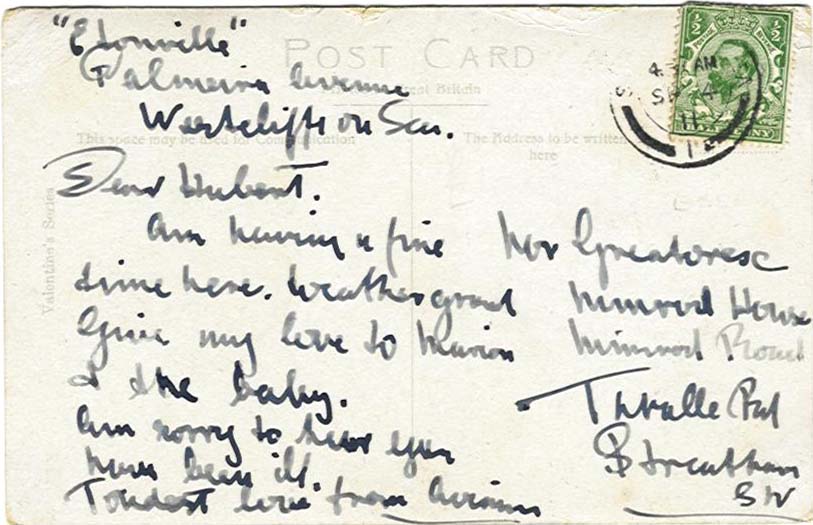 "Etonville"
Palmeira Avenue
Westcliff on Sea.
POST CARD
Great Britain
This space may be used for Communication
The Address to be written
here
Valentine's Series
½ ½
POSTAGE REVENUE
HALFPENNY
4.3 AM
SP 4
11
Dear Hubert.
Am having a fine
time here. Weather grand
Give my love to Marion
& the baby.
Am sorry to hear you
have been ill.
Fondest love from
Mr Greatorex
Nimrod House
Nimrod Road
Thralle Park
Streatham
SW